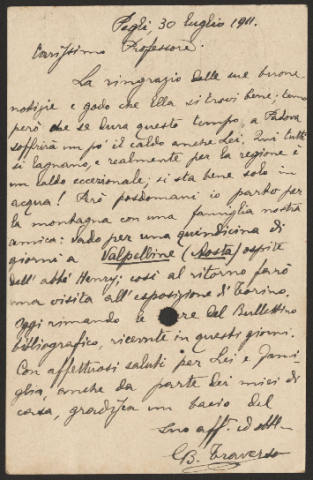 Pegli, 30 Luglio 1911.
Carissimo Professore.
La ringrazio delle sue buone
notizie e godo che Ella si trovi bene; temo
però che se dura questo tempo a Padova
soffrirà un po' il caldo anche Lei. Qui tutti
si lagnano, e realmente per la regione è
un caldo eccezionale; si sta bene solo in
acqua! Però posdomani io parto per
la montagna con una famiglia nostra
amica: vado per una quindicina di
giorni a Valpelline (Aosta) ospite
dell'abbé Henry; così al ritorno farò
una visita all'esposizione di Torino.
Oggi rimando le del Bullettino
bibliografico, ricevute in questi giorni.
Con affettuosi saluti per Lei e Fami-
glia, anche da parte dei miei di
casa, gradisca un bacio del
Suo aff. ed obbl.
G. B. Traverso